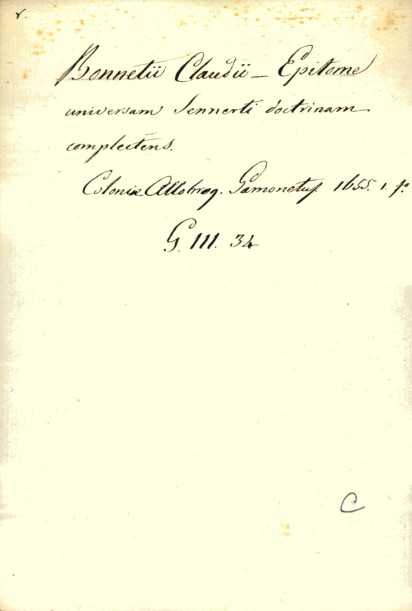 r.
Bonnetii Claudii — Epitome
universam Sennerti doctrinam
complectens.
Coloniæ Allobrog. Gamonetus 1655. 1. f.º
G. III. 34
C